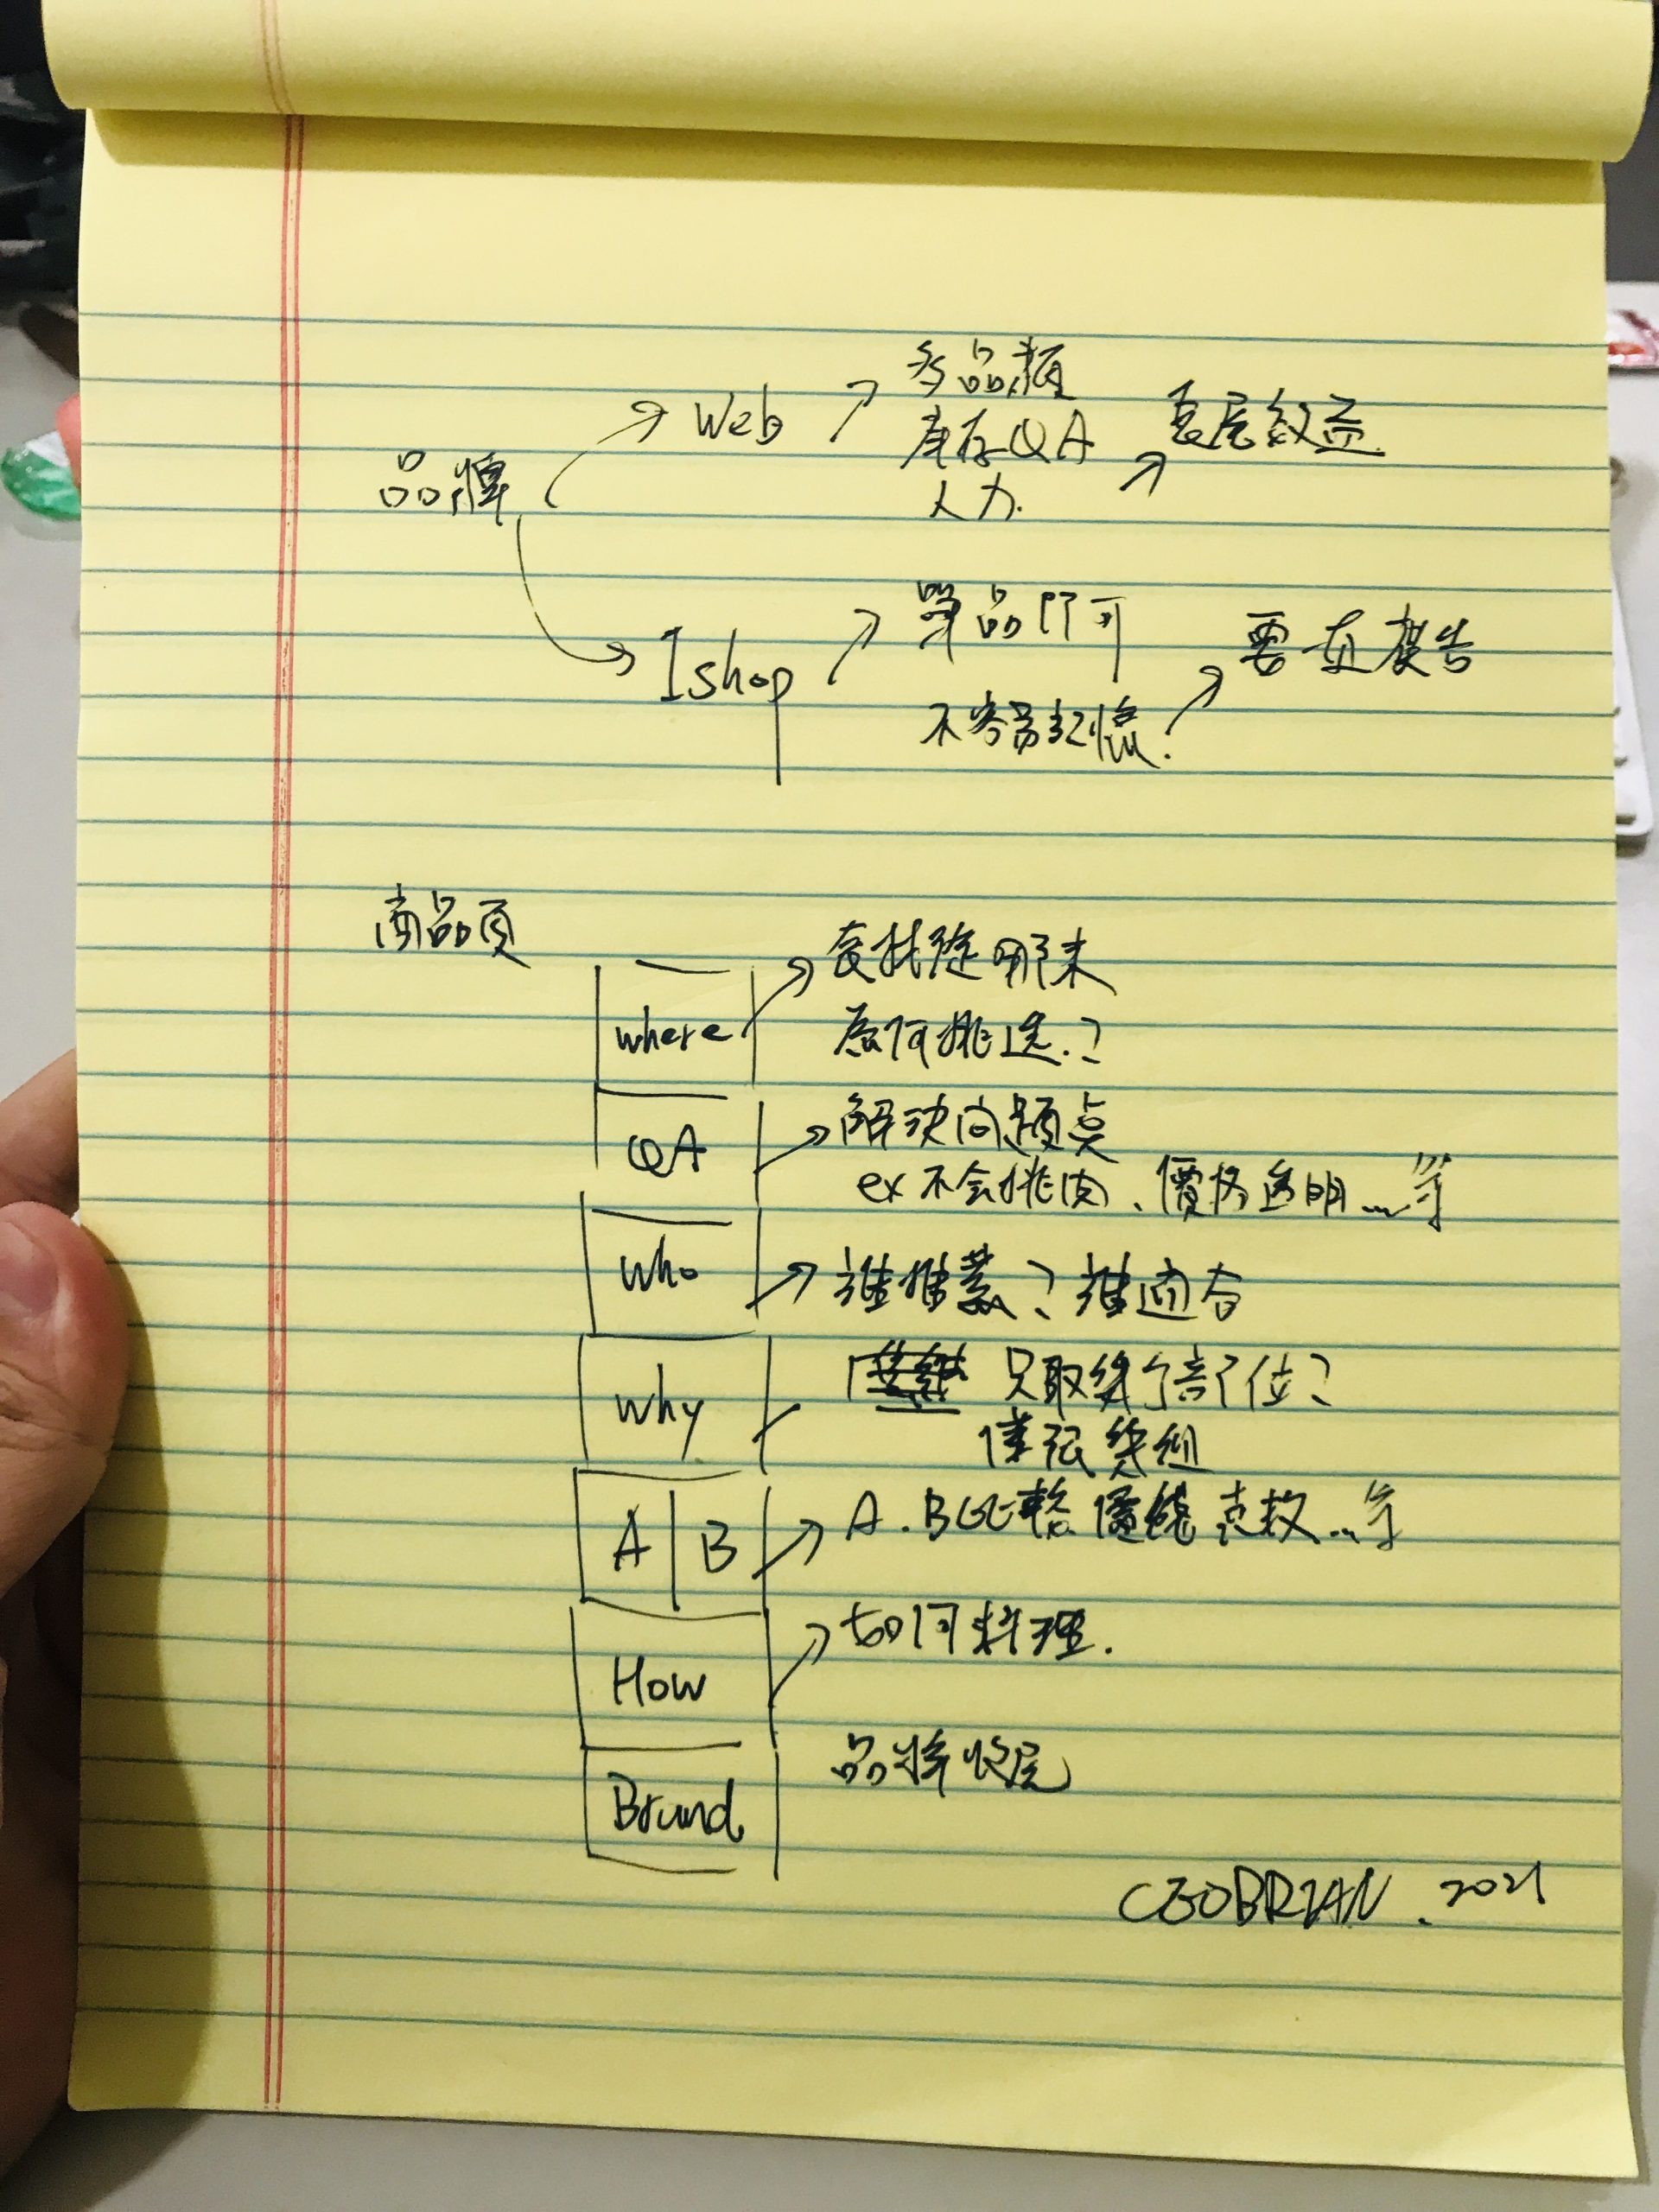 品牌
Web
多品類
庫存QA
人力.
長尾效益.
Ishop
單品即可
不容易記憶.
要有廣告
商品頁
where
食材從哪來
為何挑選.?
QA
解決問題點
ex 不会挑肉、價格透明...等
who
誰推薦? 誰適合
why
只取幾個部位?
A B
A.B比較 價錢 克数...等
How
如何料理.
Brand
品牌收尾
CEOBRIAN. 2021